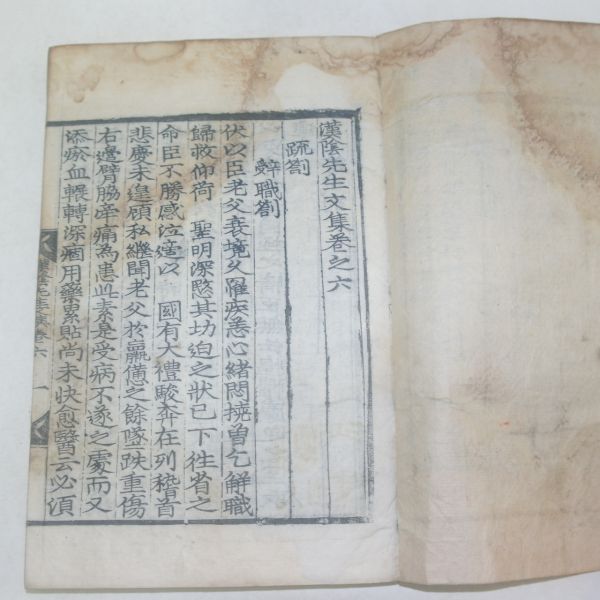 漢陰先生文集卷之六
疏劄
辭職劄
伏以臣老父衰境久罹疾恙心緒悶撓曾乞解職
歸救仰荷 聖明深愍其切迫之狀已下往省之
命臣不勝感泣豈以 國有大禮駿奔在列稽首
悲慶未遑顧私繼聞老父於羸憊之餘墜跌重傷
右邊臂脇牽痛為患此素是受病不遂之處而又
添瘀血輾轉深痼用藥累貼尚未快愈醫云必須
漢陰先生文集卷六 一